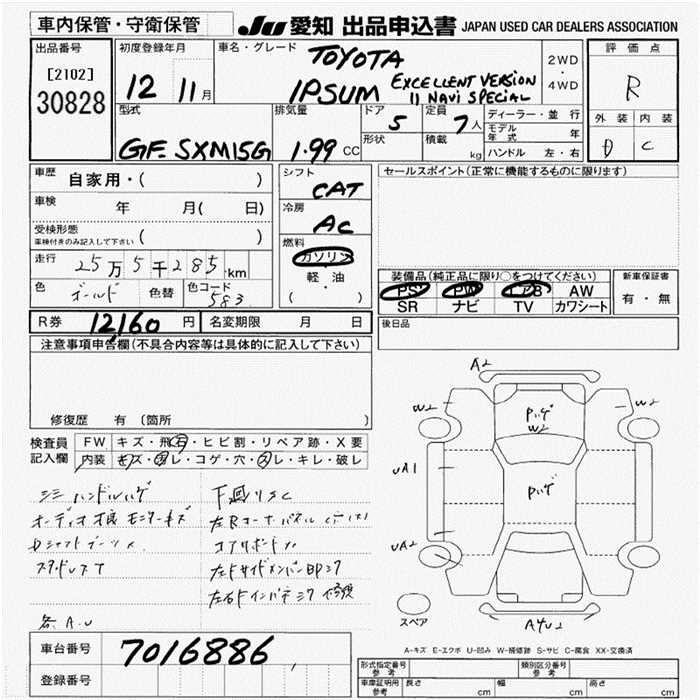 車内保管・守衛保管
JU 愛知 出品申込書 JAPAN USED CAR DEALERS ASSOCIATION
出品番号
[2102]
30828
初度登録年月
12 11月
車名・グレード
TOYOTA
IPSUM EXCELLENT VERSION
II NAVI SPECIAL
2WD
・
4WD
評価点
R
外装 内装
D C
型式
GF-SXM15G
排気量
1.99 CC
ドア
5
形状
定員
7人
積載
kg
ディーラー・並行
モデル年式 年
ハンドル 左・右
車歴
自家用・( )
車検
年 月( 日)
受検形態
車検付きのみ記入して下さい ( )
走行
25万5千285km
色
ゴールド
色替
色コード
583
シフト
CAT
冷房
AC
燃料
ガソリン
・
軽・油
( )
セールスポイント(正常に機能するものに限ります)
装備品(純正品に限り○をつけてください)
PS PW エアB AW
SR ナビ TV カワシート
新車保証書
有・無
後日品
R券 12160 円
名変期限 月 日
注意事項申告欄(不具合内容等は具体的に記入して下さい)
修復歴 有 (箇所 )
検査員
記入欄
FW キズ・飛石・ヒビ割・リペア跡・X要
内装 キズ・汚レ・コゲ・穴・スレ・キレ・破レ
シミ ハンドルハゲ
オーディオ不良 モニターキズ
スタッドレスT
各A.U
下廻りSC
コアサポート
A2
W2
W2
UA1
UA2
Pハゲ
W2
Pハゲ
スペア
AYU2
A-キズ E-エクボ U-凹み W-補修跡 S-サビ C-腐食 XX-交換済
車台番号
7016886
登録番号
形式指定番号
参考
類別区分番号
参考
車庫証明用
参考
長さ cm 幅 cm 高さ cm